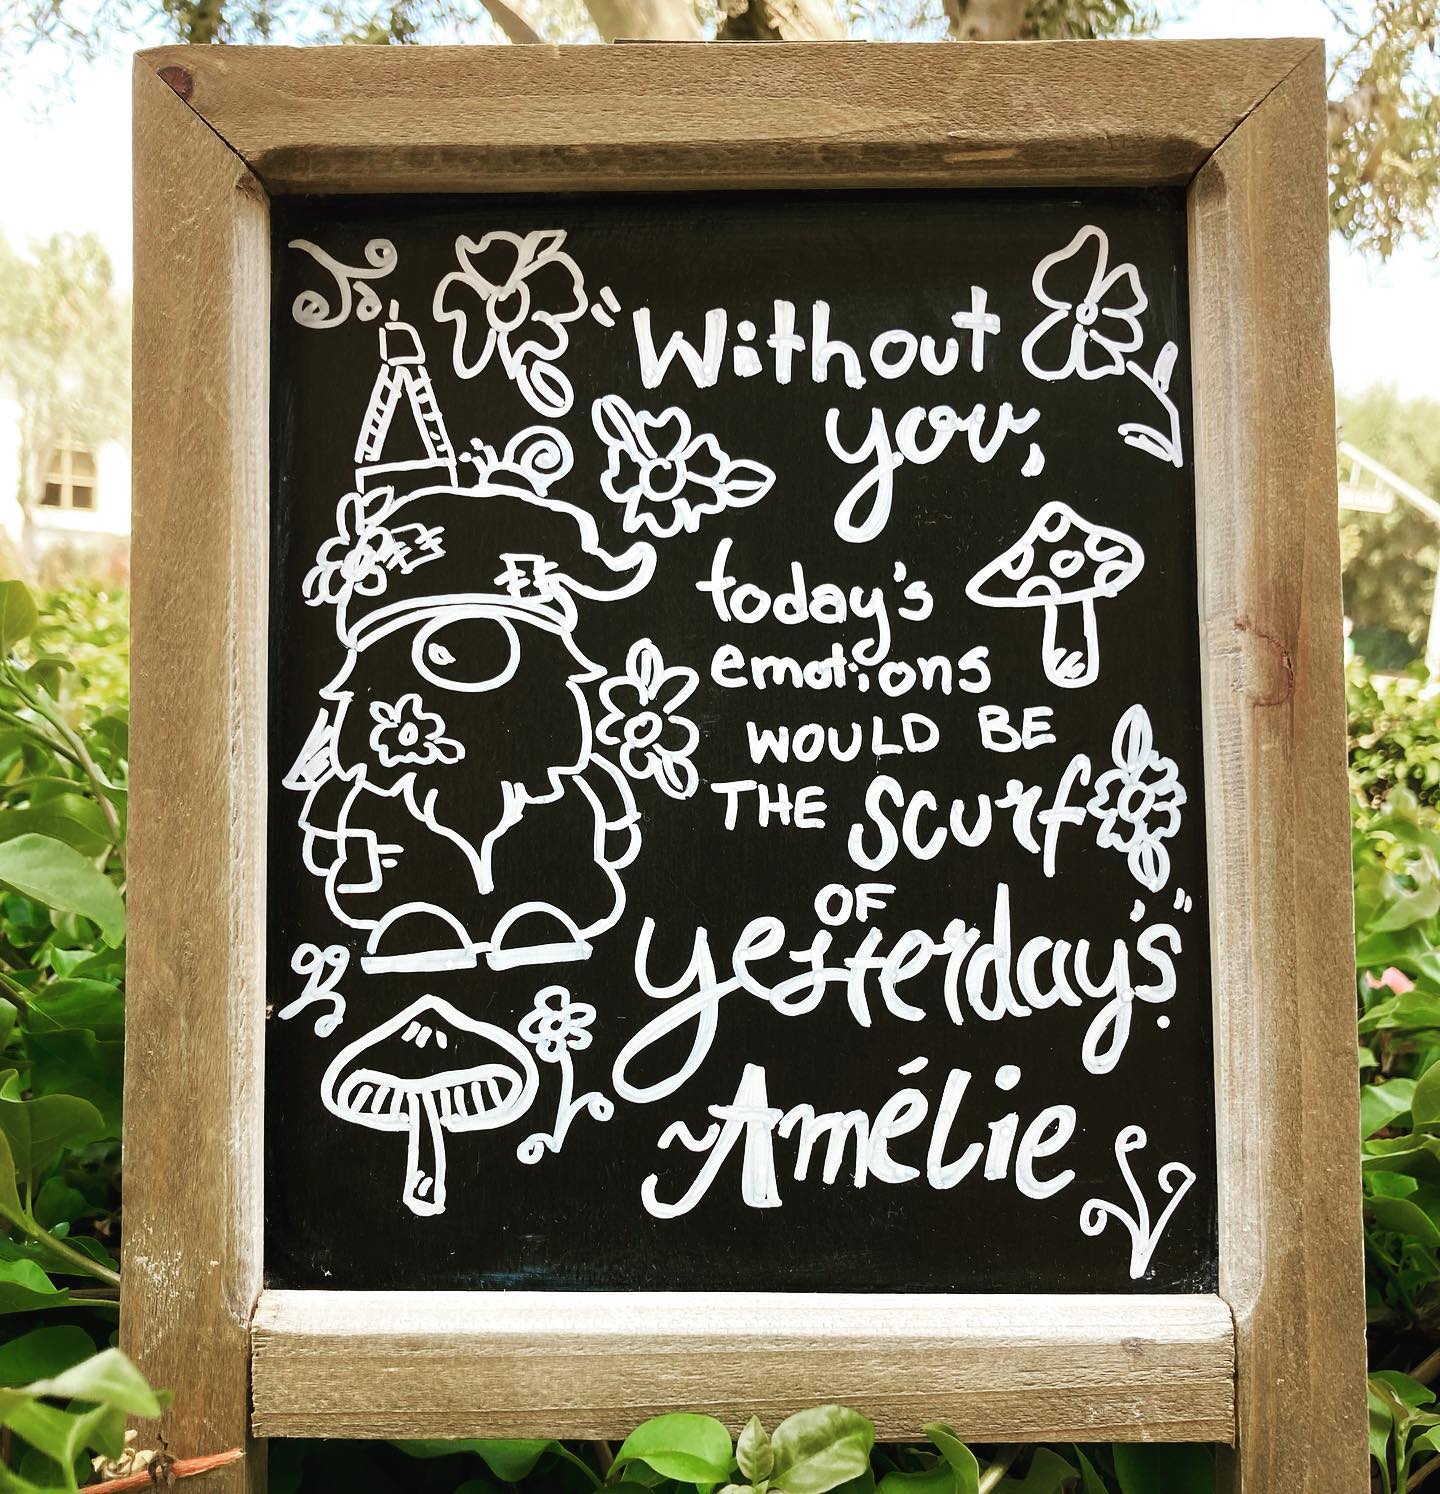 "Without
you,
today's
emotions
WOULD BE
THE scurf
OF
yesterday's".
~Amélie